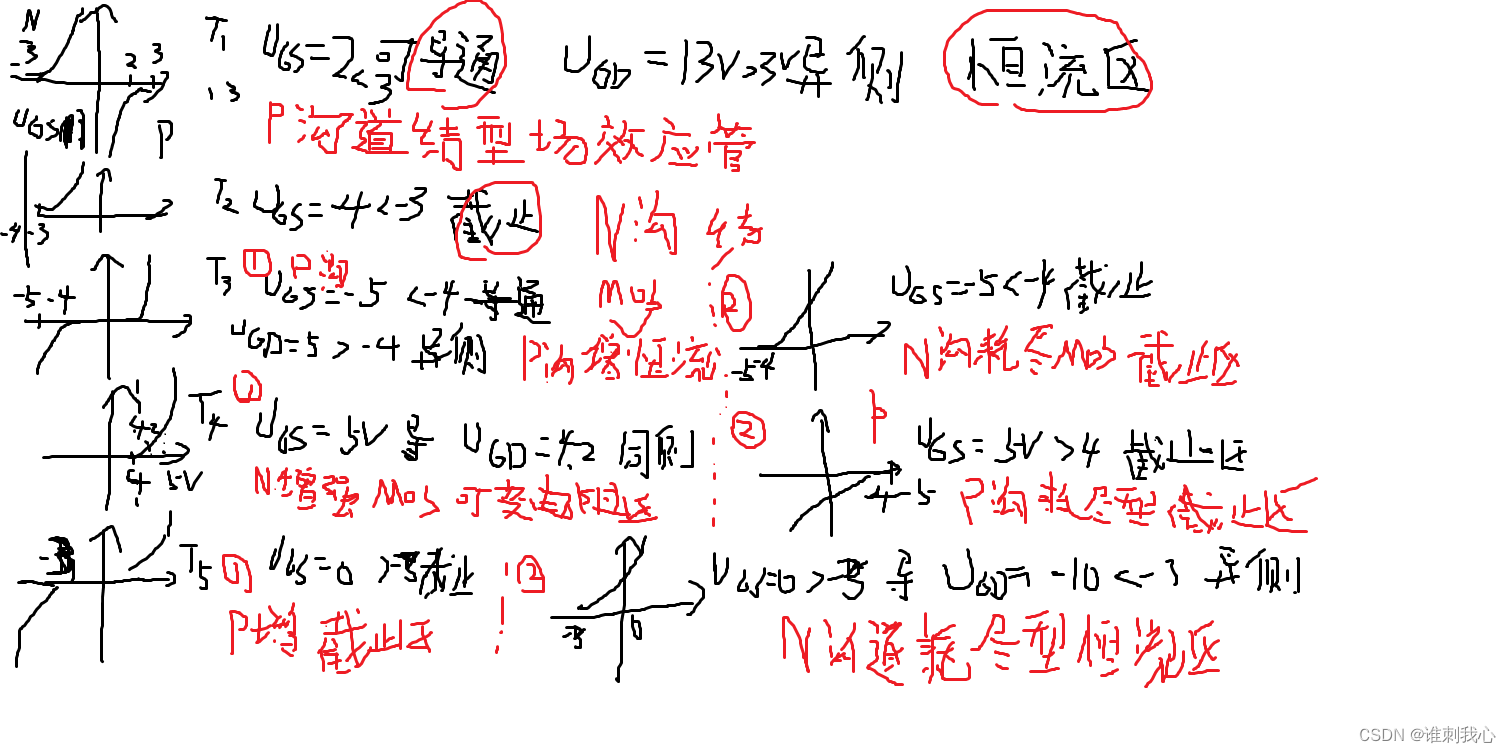 N
-3
2 3
P
T₁ U_GS=2<3 可导通 U_GD=13V>3V异侧 恒流区
P沟道结型场效应管
-4 -3
T₂ U_GS=-4<-3 截止 N沟 结
-5 -4
T₃ ① P沟 U_GS=-5<-4 导通 MOS
U_GD=5>-4 异侧 P沟增 恒流
② U_GS=-5<-4 截止
-5 -4
N沟耗尽MOS 截止区
4.2
4 5V
T₄ ① U_GS=5V 导 U_GD=4.2 同侧
N增强MOS 可变电阻区
② P U_GS=5V>4 截止区
4 5
P沟耗尽型截止区
-3
T₅ ① U_GS=0>-3 截止
P增 截止区
② U_GS=0>-3 导 U_GD=-10<-3 异侧
-3 0
N沟道耗尽型恒流区
CSDN @谁刺我心